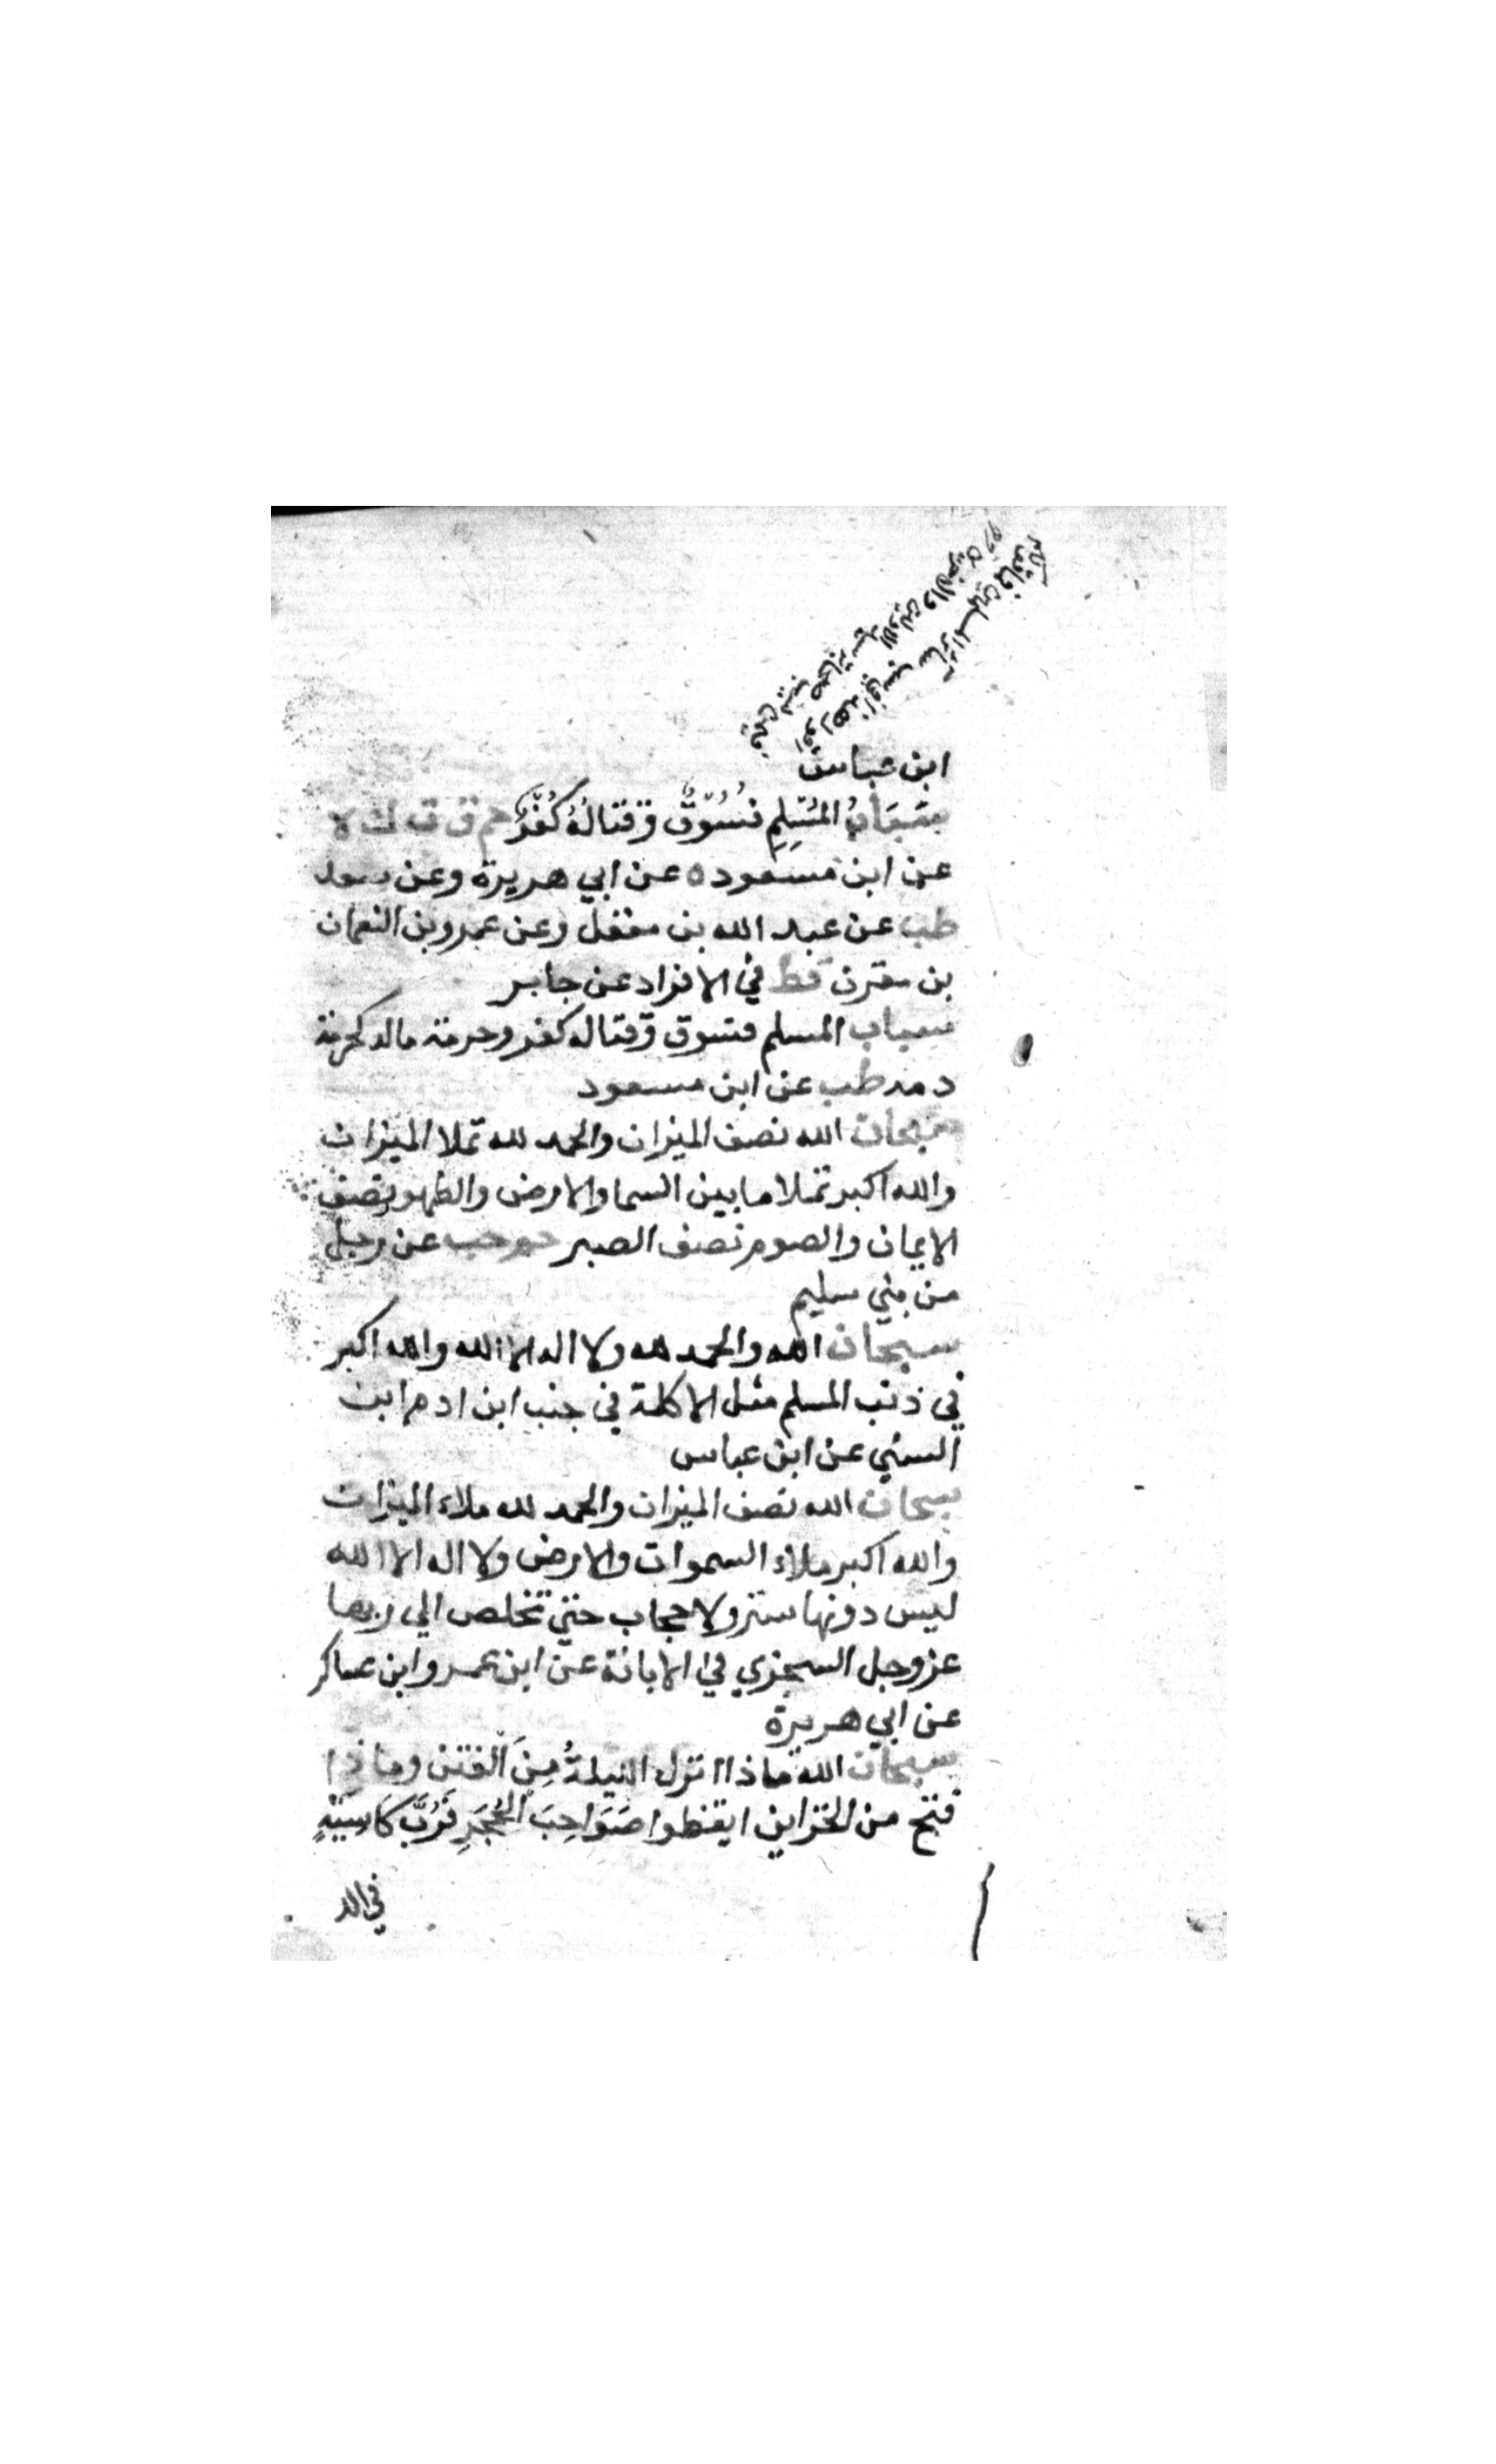 ابن عباس
سِبَابُ المُسْلِمِ فُسُوقٌ وقتالُهُ كُفْرٌ حم ق ت ن ه لا
عن ابن مسعود ه عن ابي هريرة وعن سعد
طب عن عبد الله بن مغفل وعن عمرو بن النعمان
بن مقرن قط في الافراد عن جابر
سباب المسلم فسوق وقتاله كفر وحرمة ماله كحرمة
دمه طب عن ابن مسعود
سبحان الله نصف الميزان والحمد لله تملا الميزان
والله اكبر تملا ما بين السما والارض والطهور نصف
الايمان والصوم نصف الصبر حم هب عن رجل
من بني سليم
سبحان الله والحمد لله ولا اله الا الله والله اكبر
في ذنب المسلم مثل الاكلة في جنب ابن ادم ابن
السني عن ابن عباس
سبحان الله نصف الميزان والحمد لله ملاء الميزان
والله اكبر ملاء السموات والارض ولا اله الا الله
ليس دونها ستر ولا حجاب حتي تخلص الي ربها
عز وجل السجزي في الابانة عن ابن عمرو ابن عساكر
عن ابي هريرة
سبحان الله ماذا انزل الليلةُ مِنَ الفتن وماذا
فتح من الخزاين ايقظوا صَوَاحِبَ الحُجَرِ فَرُبَّ كَاسِيَةٍ
في الد